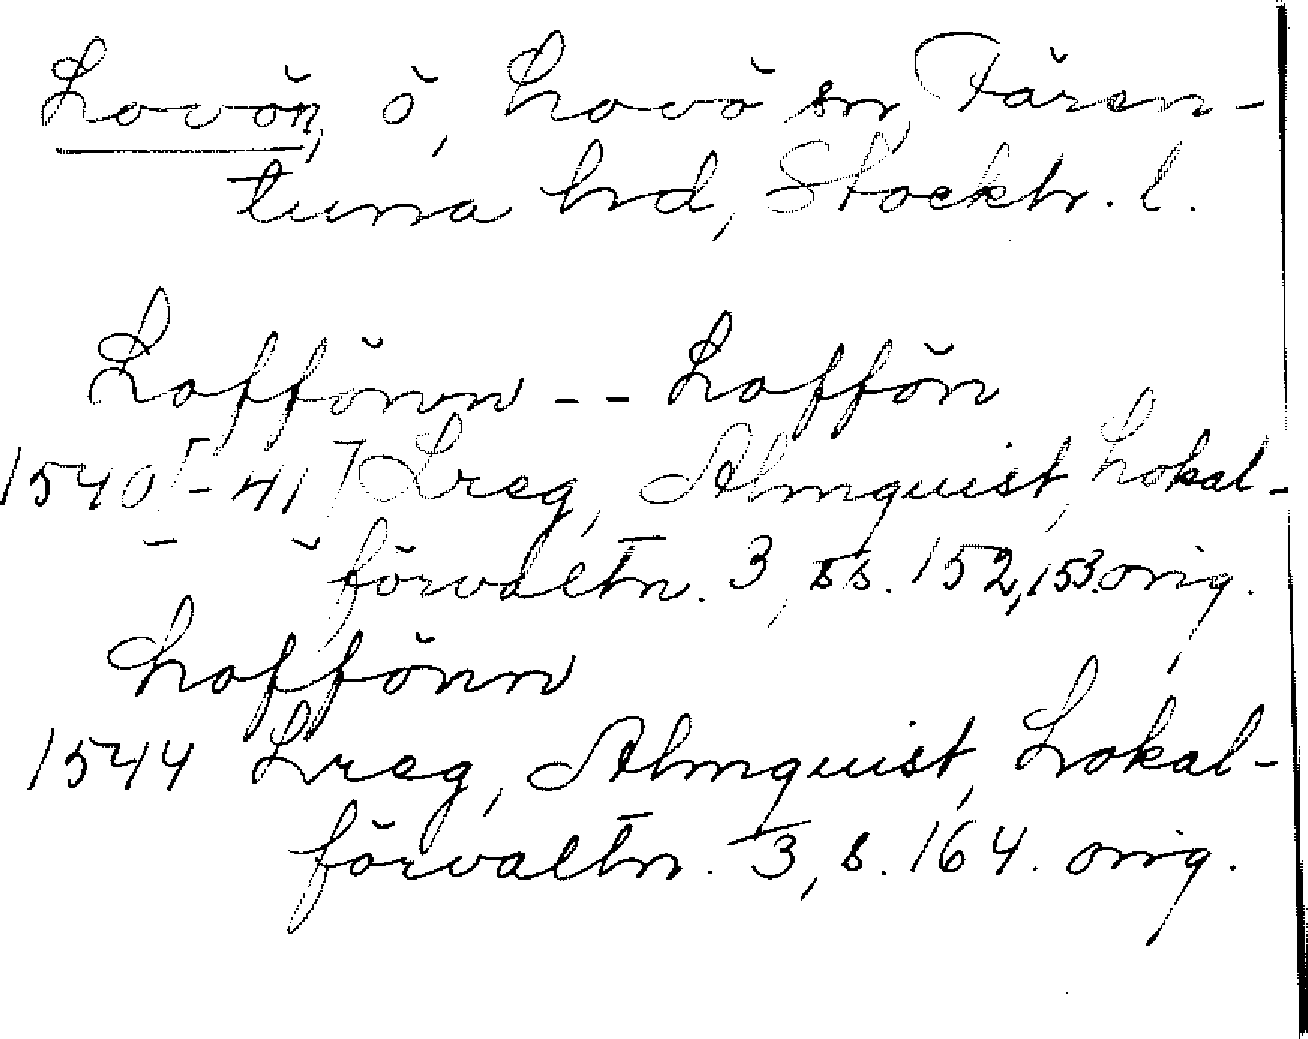 Lovön, ö, Lovö sn, Fären-
tuna hd, Stockh. l.
Loffönn -- Loffön
1540[-41] Lreg, Almquist, Lokal-
förvaltn. 3, ss. 152, 153. orig.
Loffönn
1544 Lreg, Almquist, Lokal-
förvaltn. 3, s. 164. orig.